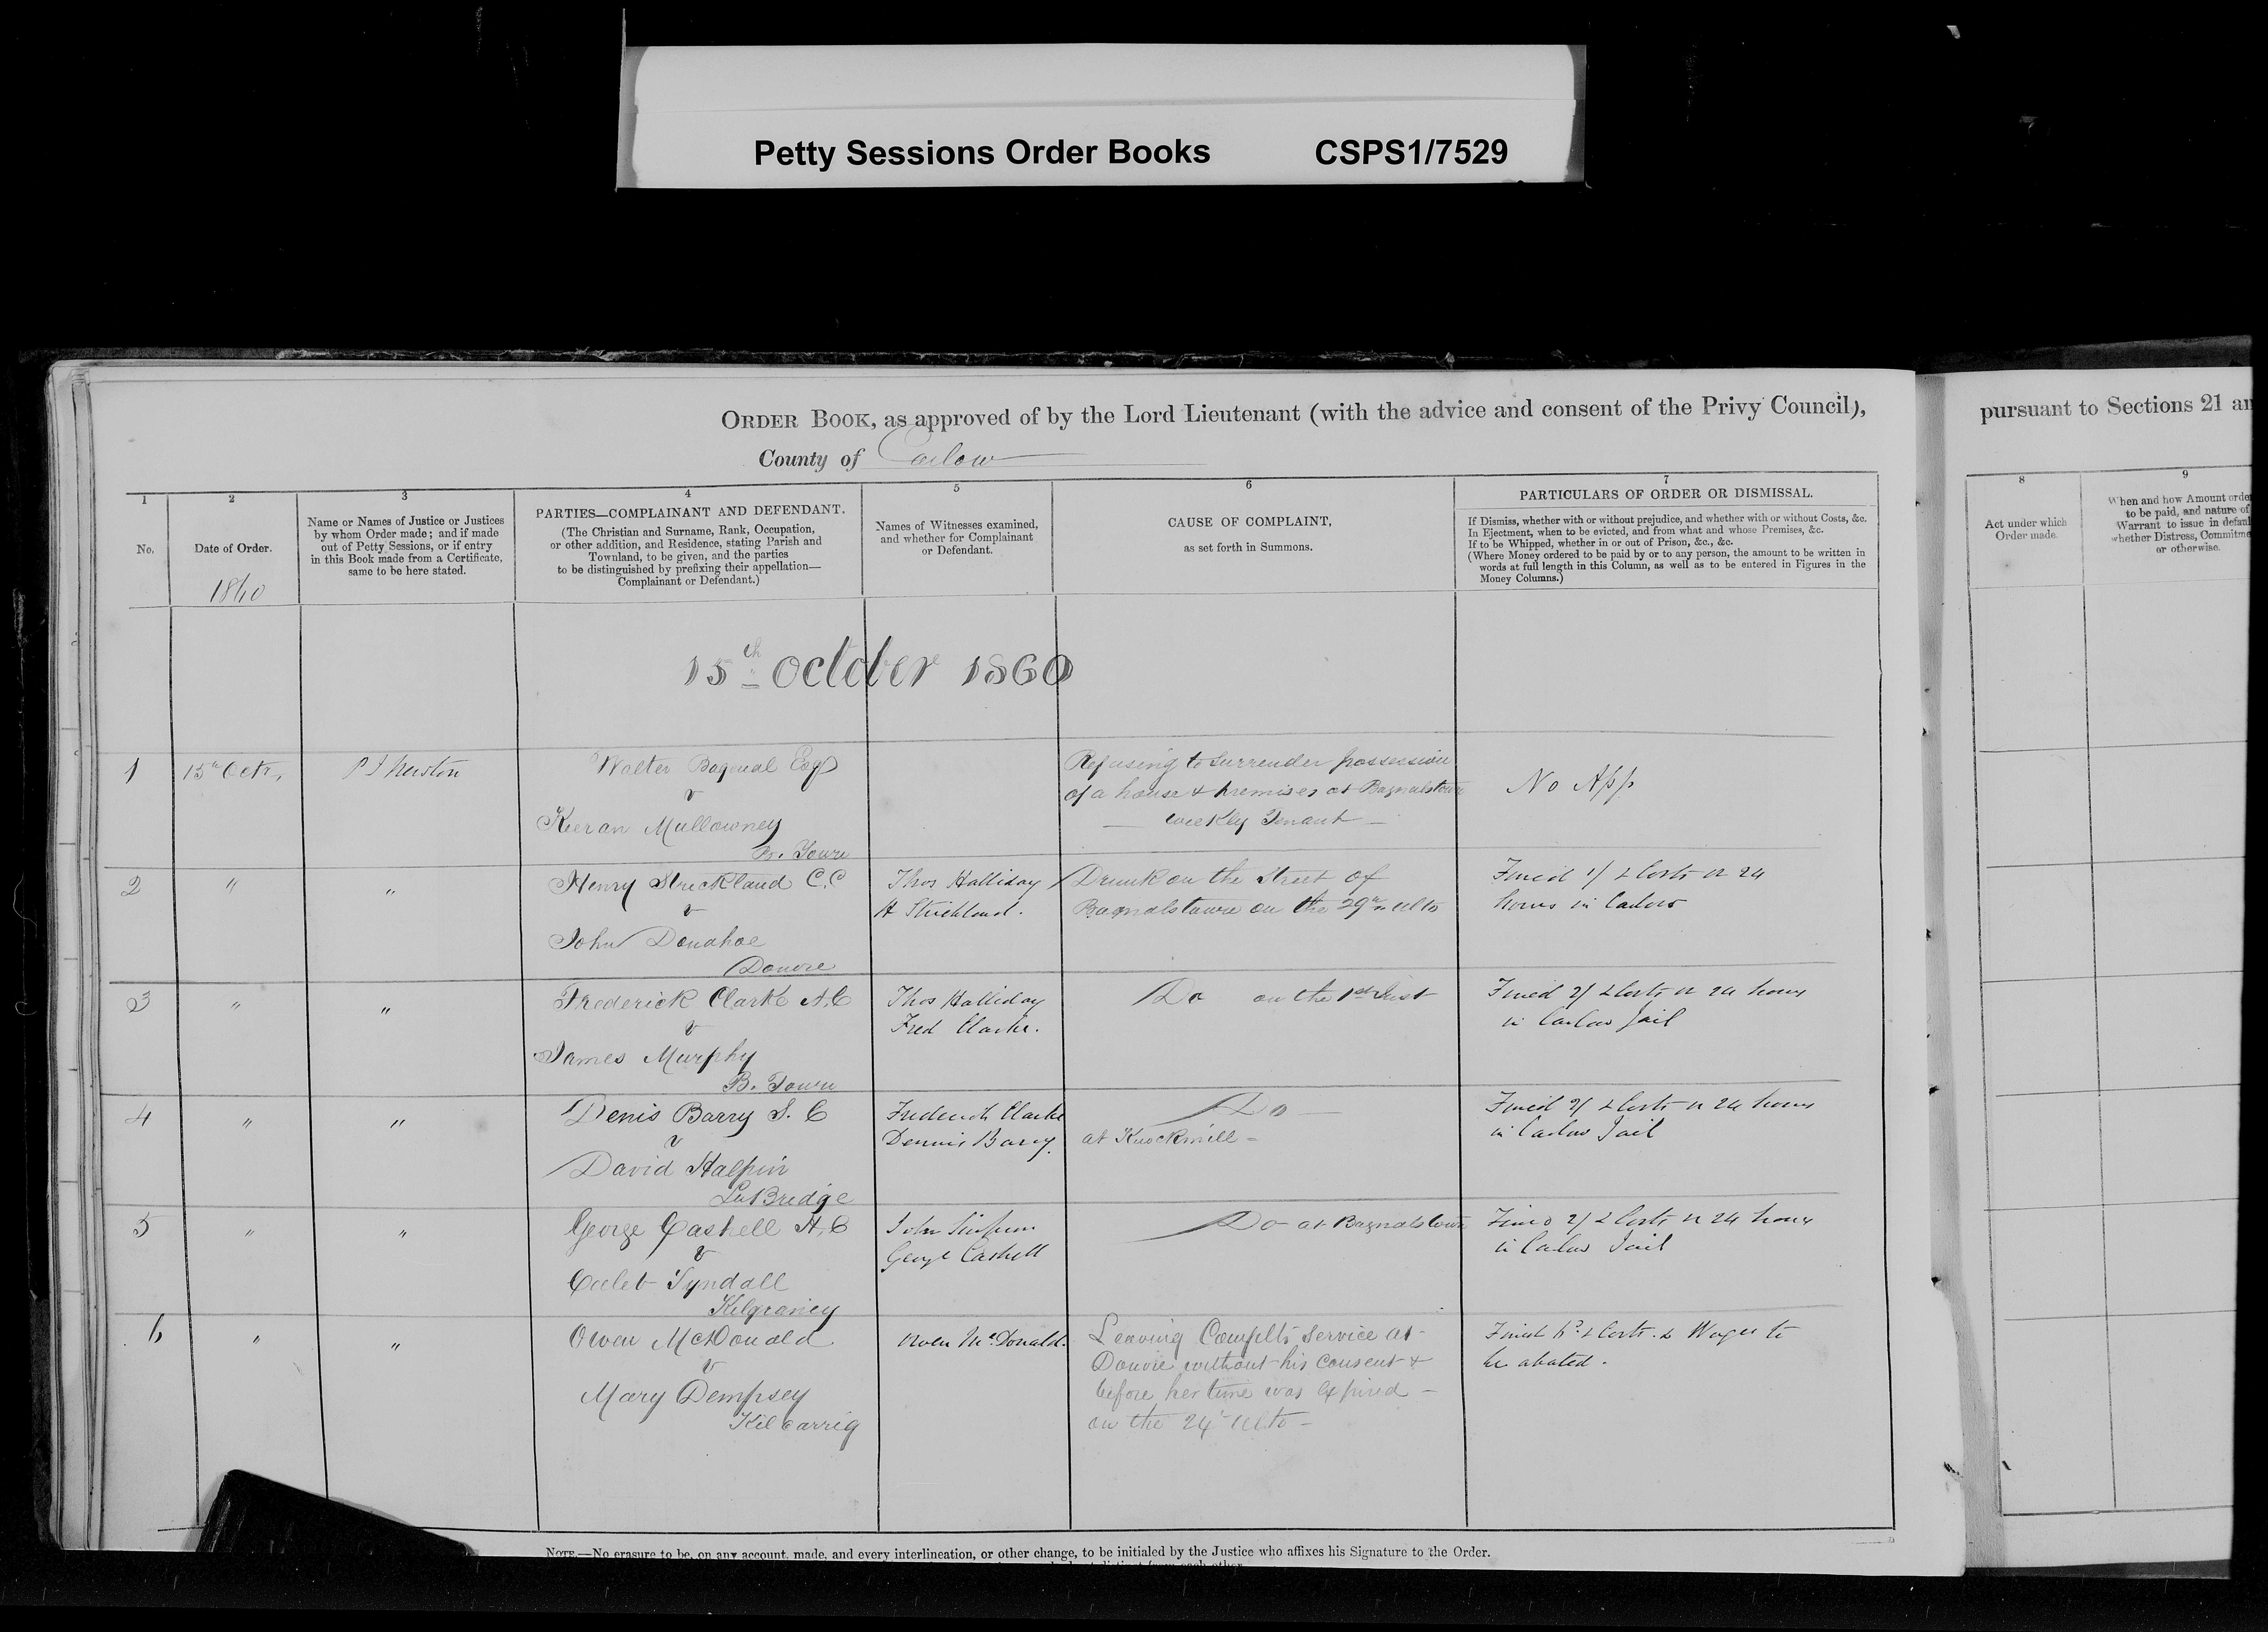 Petty Sessions Order Books CSPS1/7529
ORDER BOOK, as approved of by the Lord Lieutenant (with the advice and consent of the Privy Council),
County of Carlow
1
No.
2
Date of Order.
1860
3
Name or Names of Justice or Justices
by whom Order made; and if made
out of Petty Sessions, or if entry
in this Book made from a Certificate,
same to be here stated.
4
PARTIES—COMPLAINANT AND DEFENDANT.
(The Christian and Surname, Rank, Occupation,
or other addition, and Residence, stating Parish and
Townland, to be given, and the parties
to be distinguished by prefixing their appellation—
Complainant or Defendant.)
5
Names of Witnesses examined,
and whether for Complainant
or Defendant.
6
CAUSE OF COMPLAINT,
as set forth in Summons.
7
PARTICULARS OF ORDER OR DISMISSAL.
If Dismiss, whether with or without prejudice, and whether with or without Costs, &c.
In Ejectment, when to be evicted, and from what and whose Premises, &c.
If to be Whipped, whether in or out of Prison, &c., &c.
(Where Money ordered to be paid by or to any person, the amount to be written in
words at full length in this Column, as well as to be entered in Figures in the
Money Columns.)
15th October 1860
1
15th Octr,
P J Newton
Walter Bagnal Esq
v
Kieran Mullowney
B. Town
Refusing to surrender possession
of a house & premises at Bagnalstown
— weekly Tenant —
No App
2
"
"
Henry Strickland C.C
v
John Donahoe
Donore
Thos Halliday
H Strickland.
Drunk on the Street of
Bagnalstown on the 29th ulto
Fined 1/ & Costs or 24
hours in Carlow
3
"
"
Frederick Clarke A.C
v
James Murphy
B. Town
Thos Halliday
Fred Clarke.
Do on the 1st Inst
Fined 2/ & Costs or 24 hours
in Carlow Jail
4
"
"
Denis Barry S. C
v
David Halpin
LnBridge
Frederick Clarke
Dennis Barry.
Do —
at Knockmill -
Fined 2/ & Costs or 24 hours
in Carlow Jail
5
"
"
George Cashell A.C
v
Caleb Tyndall
Kilgraney
John
George Cashell
Do at Bagnalstown
Fined 2/ & Costs or 24 hours
in Carlow Jail
6
"
"
Owen McDonald
v
Mary Dempsey
Kilcarrig
Owen McDonald.
Leaving Complts service at
Donore without his consent &
before her time was expired -
on the 24th ulto -
Fined & Costs. & Wages to
be abated.
NOTE.—No erasure to be, on any account, made, and every interlineation, or other change, to be initialed by the Justice who affixes his Signature to the Order.
pursuant to Sections 21 an
8
Act under which
Order made.
9
When and how Amount orde
to be paid, and nature of
Warrant to issue in defaul
whether Distress, Commitme
or otherwise.